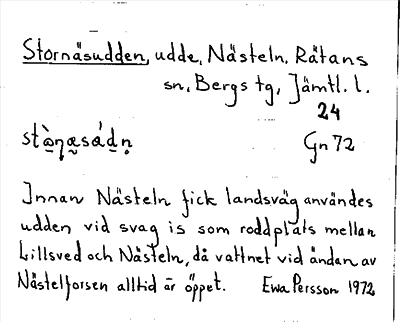 Stornäsudden, udde, Nästeln, Rätans
sn, Bergs tg, Jämtl. l.
24
Gn 72
Innan Nästeln fick landsväg användes
udden vid svag is som roddplats mellan
Lillsved och Nästeln, då vattnet vid ändan av
Nästelforsen alltid är öppet. Ewa Persson 1972